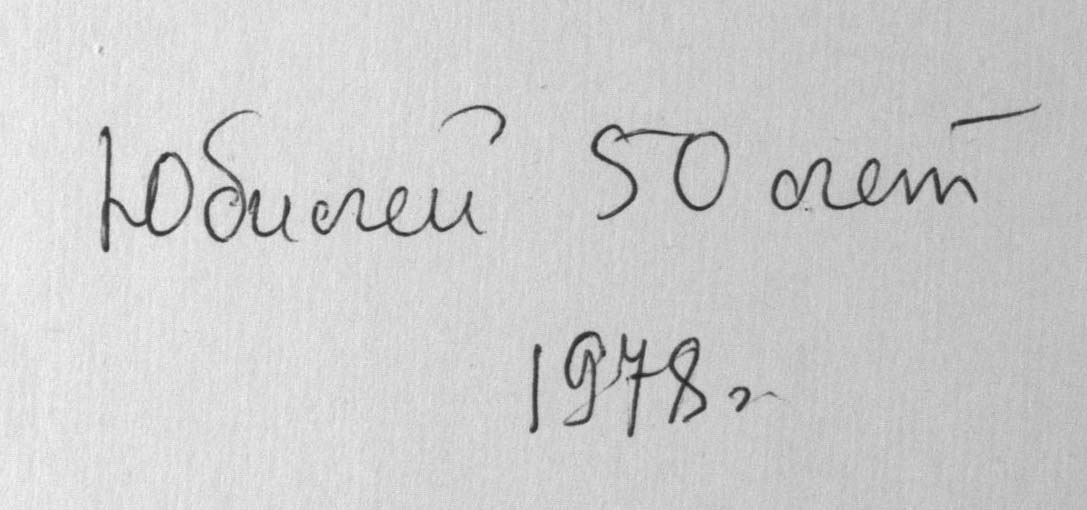 Юбилей 50 лет
1978 г